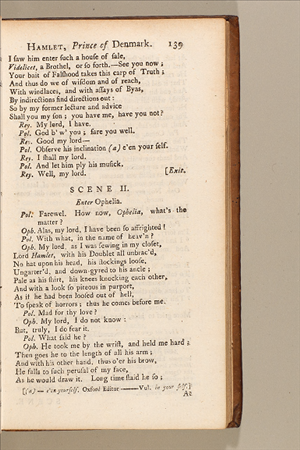 HAMLET, Prince of Denmark. 139
I saw him enter such a house of sale,
Videlicet, a Brothel, or so forth.—See you now;
Your bait of Falshood takes this carp of Truth;
And thus do we of wisdom and of reach,
With windlaces, and with assays of Byas,
By indirections find directions out:
So by my former lecture and advice
Shall you my son; you have me, have you not?
Rey. My lord, I have.
Pol. God b' w' you; fare you well.
Rey. Good my lord—
Pol. Observe his inclination (a) e'en your self.
Rey. I shall my lord.
Pol. And let him ply his musick.
Rey. Well, my lord. [Exit.
SCENE II.
Enter Ophelia.
Pol. Farewel. How now, Ophelia, what's the
matter?
Oph. Alas, my lord, I have been so affrighted!
Pol. With what, in the name of heav'n?
Oph. My lord, as I was sewing in my closet,
Lord Hamlet, with his Doublet all unbrac'd,
No hat upon his head, his stockings loose,
Ungarter'd, and down-gyred to his ancle;
Pale as his shirt, his knees knocking each other,
And with a look so piteous in purport,
As if he had been loosed out of hell,
To speak of horrors; thus he comes before me.
Pol. Mad for thy love?
Oph. My lord, I do not know:
But, truly, I do fear it.
Pol. What said he?
Oph. He took me by the wrist, and held me hard;
Then goes he to the length of all his arm;
And with his other hand, thus o'er his brow,
He falls to such perusal of my face,
As he would draw it. Long time staid he so;
[(a) — e'en yourself. Oxford Editor——Vul. in your self.]
At